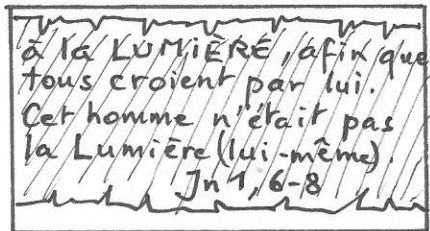 à la LUMIÈRE, afin que
tous croient par lui.
Cet homme n'était pas
la Lumière (lui-même).
Jn 1, 6-8